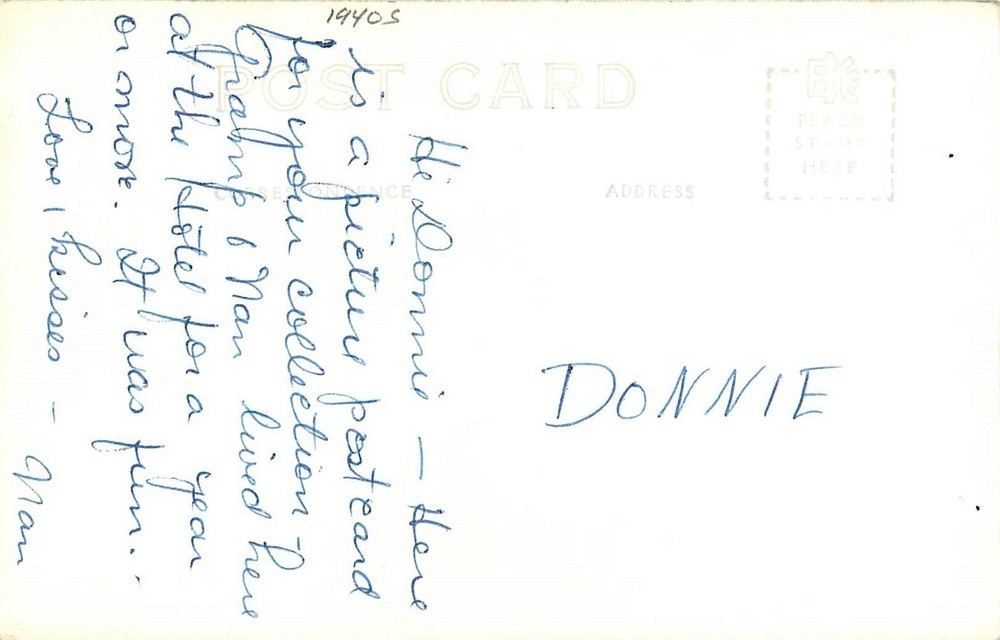 1940s
POST CARD
EKC
PLACE
STAMP
HERE
CORRESPONDENCE
ADDRESS
Hi Donnie — Here
is a picture postcard
for your collection
Gramp & Nan lived here
at the Hotel for a year
or more. It was fun.-
Love & kisses -
Nan
DONNIE